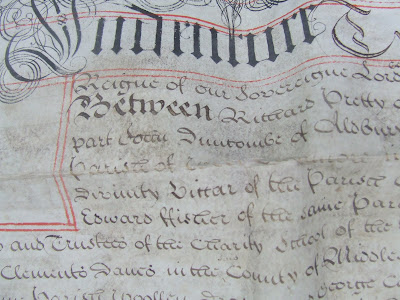 Indenture
Reigne of our Sovereigne Lord
Between Richard Pretty
part John Duncombe of Aldbury
Parish of
divinity Viccar of the Parish
Edward Fisher of the same Par
and Trustees of the Charity School of the
Clements Danes in the County of Middle
Parish Woollen George